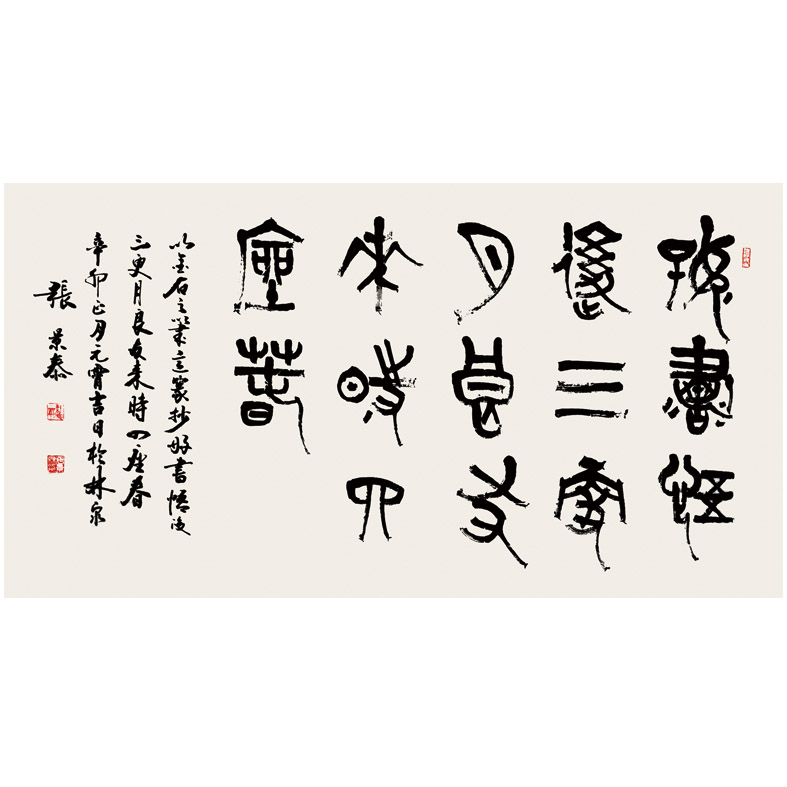 好書悟
後三更
月良友
來時四
座春
以金石之筆意篆抄好書悟後
三更月良友来時四座春
辛卯正月元宵吉日於林泉
張景泰